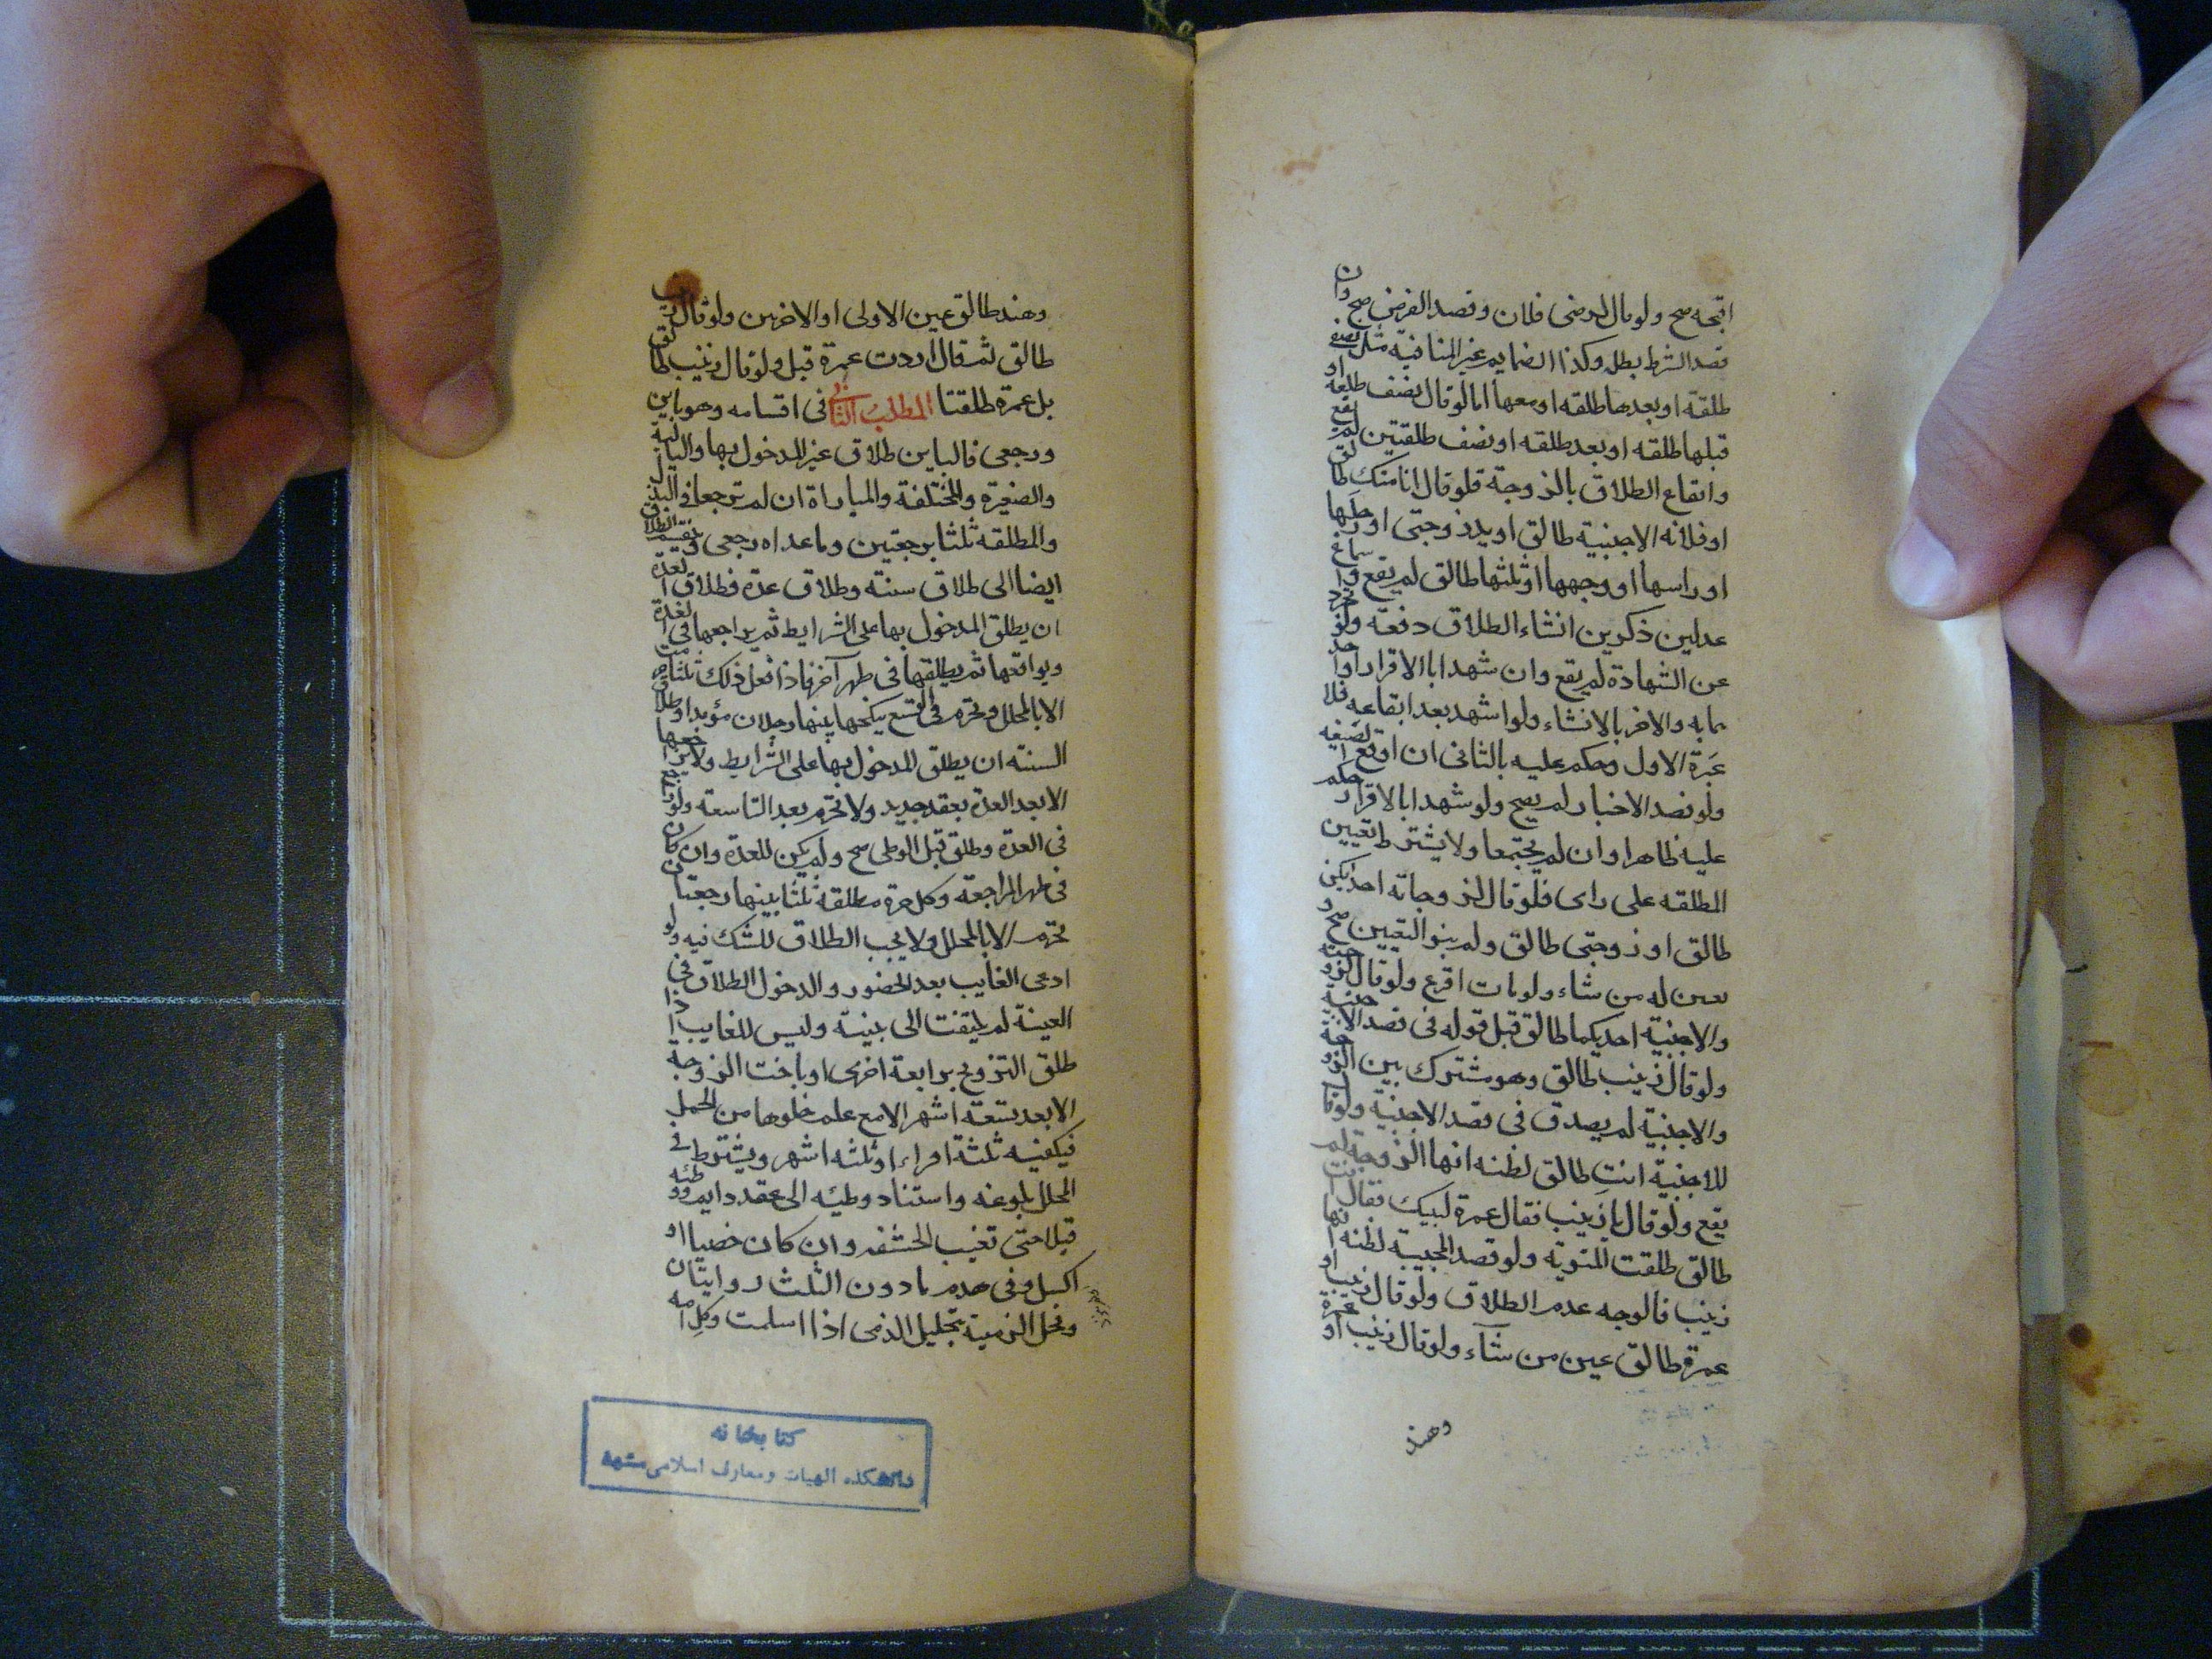 اقبحه صح ولو قال لرضى فلان وقصد الغرض صح وان
قصد الشرط بطل وكذا الضمايم غير المنافية مثل نصف
طلقة او بعدها طلقه او معها اما لو قال نصف طلقه او
قبلها طلقه او بعد طلقه او نصف طلقتين لم يقع
وايقاع الطلاق بالزوجة فلو قال انا منك طالق
او فلانه الاجنبية طالق او يد زوجتى او رجلها
او راسها او وجهها او ثلثها طالق لم يقع وسماع
عدلين ذكرين انشاء الطلاق دفعة ولو تجرد
عن الشهادة لم يقع وان شهدا بالاقرار او احد
هما به والاخر بالانشاء ولو اشهد بعد ايقاعه فلا
عبرة الاول وحكم عليه بالثانى ان اوقع الصيغه
ولو قصد الاخبار لم يصح ولو شهدا بالاقرار حكم
عليه ظاهرا وان لم يجتمعا ولا يشترط تعيين
المطلقه على راى فلو قال لزوجاته احديكن
طالق او زوجتى طالق ولم ينو التعيين صح و
يعين له من شاء ولو مات اقرع ولو قال لزوجته
والاجنبية احديكما طالق قبل قوله فى قصد الاجنبية
ولو قال زينب طالق وهو مشترك بين الزوجة
والاجنبية لم يصدق فى قصد الاجنبية ولو قال
للاجنبية انتِ طالق لظنه انها الزوجة لم
يقع ولو قال يا زينب فقال عمرة لبيك فقال انت
طالق طلقت المنوية ولو قصد المجيبة لظنه انها
زينب فالوجه عدم الطلاق ولو قال زينب او
عمرة طالق عين من شآء ولو قال زينب او عمرة
وهند
وهند طالق عين الاولى او الاخرين ولو قال زينب
طالق ثم قال اردت عمرة قبل ولو قال زينب طالق
بل عمرة طلقتا المطلب الثانى فى اقسامه وهو باين
ورجعى فالباين طلاق غير المدخول بها واليائسة
والصغيرة والمختلعة والمباراة ان لم ترجعا فى البذل
والمطلقه ثلثا برجعتين وما عداه رجعى وينقسم الطلاق
ايضا الى طلاق سنته وطلاق عدة فطلاق العدة
ان يطلق المدخول بها على الشرايط ثم يراجعها فى العدة
ويواقعها ثم يطلقها فى طهر آخر فاذا فعل ذلك ثلثا حرمت
الا بالمحلل وتحرم فى التسع ينكحها بينها رجلان مؤبدا وطلاق
السنته ان يطلق المدخول بها على الشرايط ولا يراجعها
الا بعد العدة بعقد جديد ولا تحرم بعد التاسعة ولو راجع
فى العدة وطلق قبل الوطى صح ولم يكن للعدة وان كان
فى طهر المراجعة وكل حرة مطلقة ثلثا بينها رجعتان
تحرم الا بالمحلل ولا يجب الطلاق للشك فيه ولو
ادعى الغايب بعد الحضور والدخول الطلاق فى
الغيبة لم يلتفت الى بينته وليس للغايب اذا
طلق التزوج برابعة اخرى او باخت الزوجة
الا بعد تسعة اشهر الا مع علم خلوها من الحمل
فيكفيه ثلثة اقراء او ثلثه اشهر ويشترط فى
المحلل بلوغه واستناد وطيئه الى عقد دايم ووطئه
قبلا حتى تغيب الحشفه وان كان خصيا او
اكسل وفى هدم ما دون الثلث روايتان
وتحل الذمية بتحليل الذمى اذا اسلمت وكل امه
كتابخانه
دانشكده الهيات و معارف اسلامى مشهد